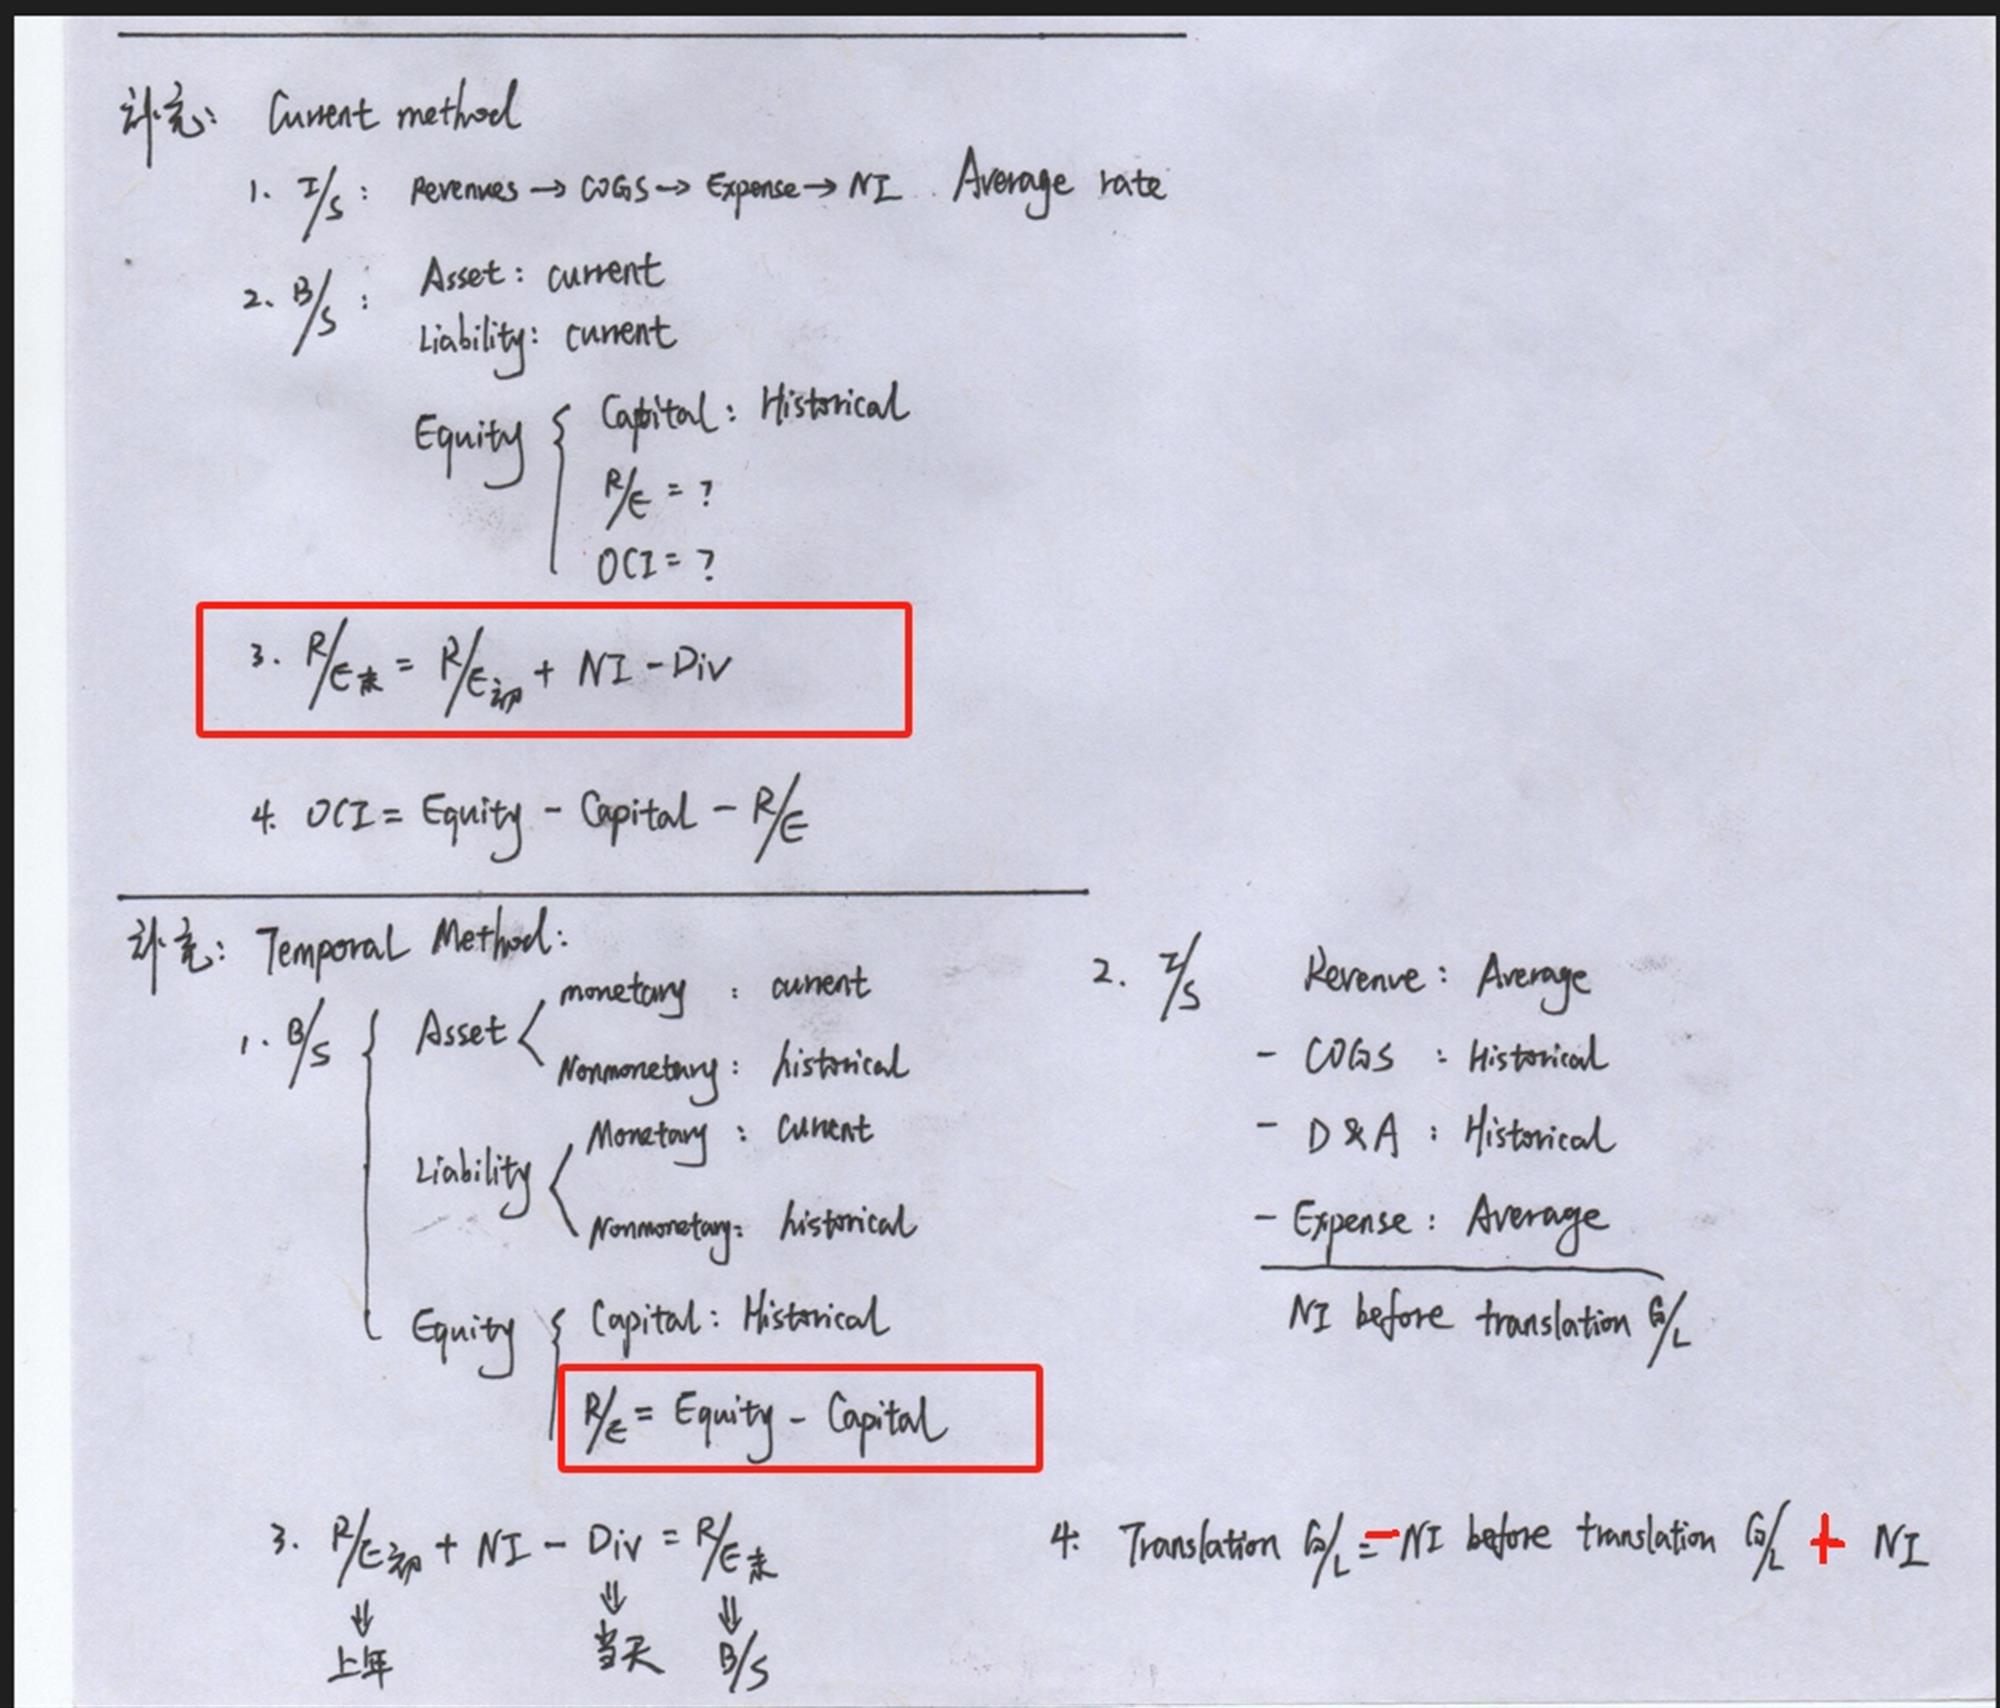 补充: Current method
1. I/S: Revenues → COGS → Expense → NI Average rate
2. B/S: Asset: current
Liability: current
Equity { Capital: Historical
R/E = ?
OCI = ?
3. R/E末 = R/E初 + NI - Div
4. OCI = Equity - Capital - R/E
补充: Temporal Method:
1. B/S { Asset < monetary : current
Nonmonetary: historical
Liability < Monetary : current
Nonmonetary: historical
Equity { Capital: Historical
R/E = Equity - Capital
2. I/S Revenue: Average
- COGS : Historical
- D&A : Historical
- Expense: Average
NI before translation G/L
3. R/E初 + NI - Div = R/E末
⇓ ⇓ ⇓
上年 当天 B/S
4. Translation G/L = - NI before translation G/L + NI